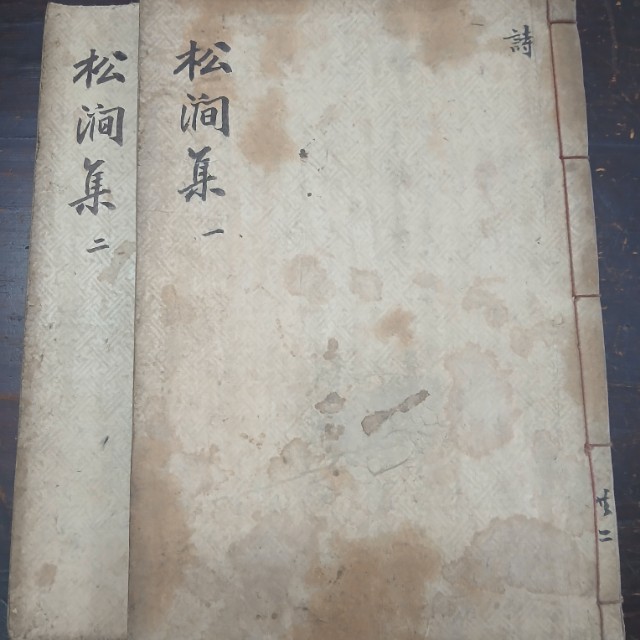 詩
松澗集
一
松澗集
二
共二